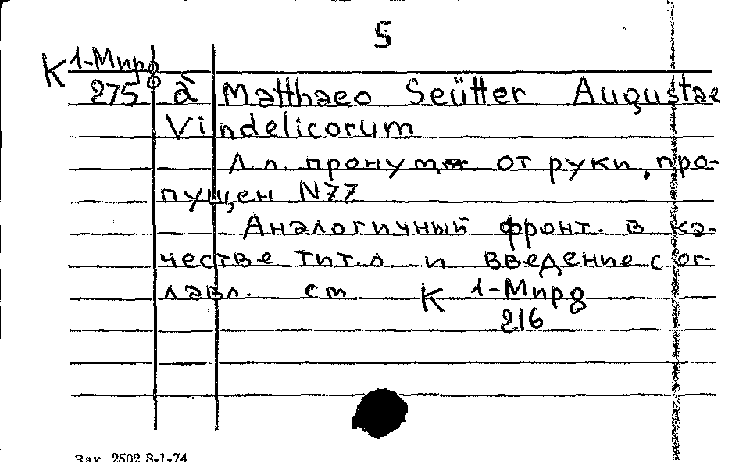 5
К 1-Мир8
275 à Matthaeo Seütter Augustae
Vindelicorum
Л.л. пронум от руки, про-
пущен N77
Аналогичный фронт. в ка-
честве тит.л. и введение с ог-
лавл. ст К 1-Мир8
216
Зак. 2502 8-1-74